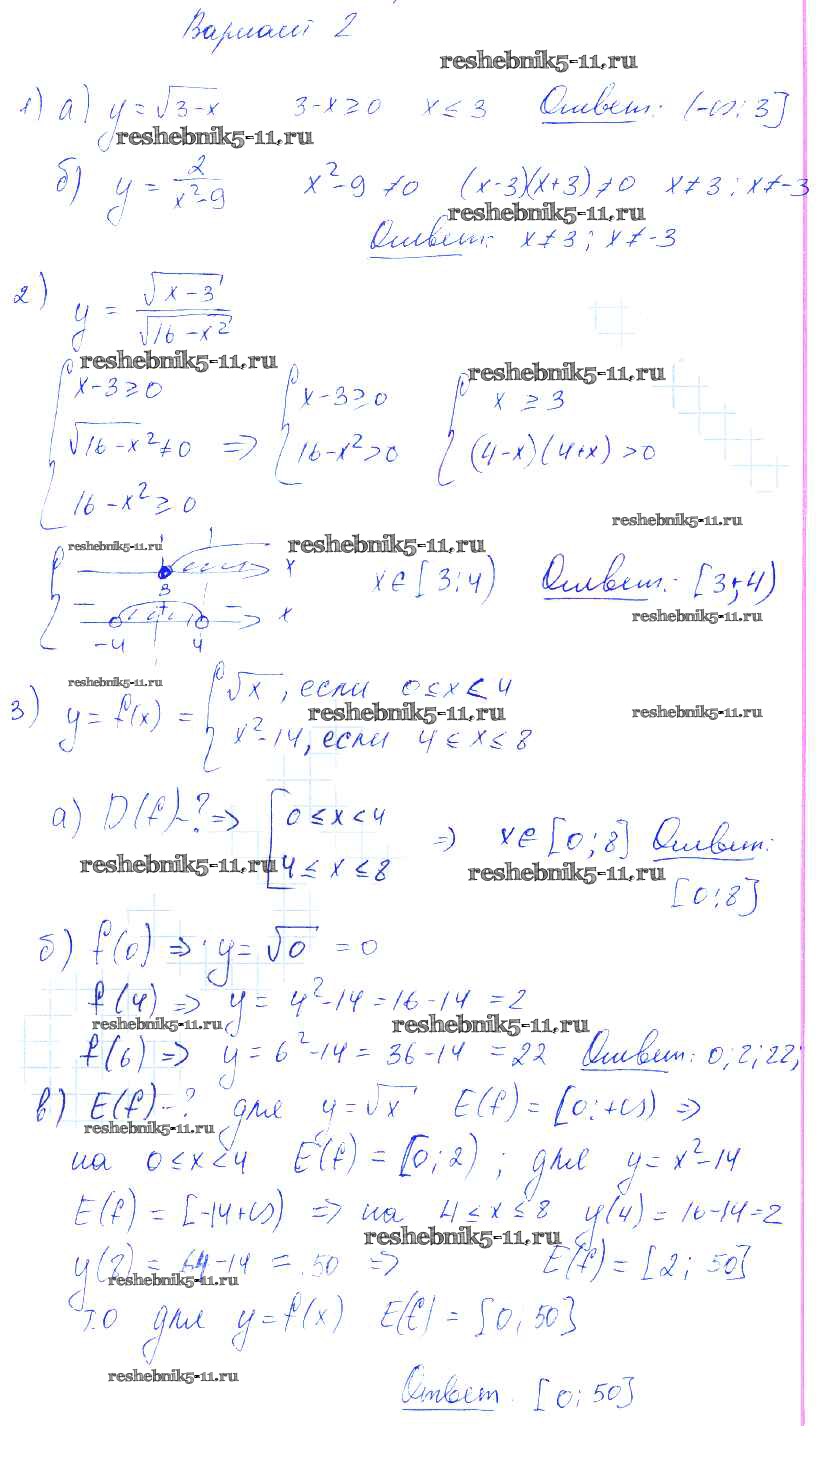 Вариант 2
reshebnik5-11.ru
1) а) y = √3-x 3-x ≥ 0 x ≤ 3 Ответ: (-∞; 3]
reshebnik5-11.ru
б) y = 2/(x²-9) x²-9 ≠ 0 (x-3)(x+3) ≠ 0 x ≠ 3; x ≠ -3
reshebnik5-11.ru
Ответ: x ≠ 3; x ≠ -3
2) y = √x-3 / √16-x²
reshebnik5-11.ru
reshebnik5-11.ru
{ x-3 ≥ 0 { x-3 ≥ 0 { x ≥ 3
√16-x² ≠ 0 => 16-x² > 0 (4-x)(4+x) > 0
16-x² ≥ 0
reshebnik5-11.ru
reshebnik5-11.ru reshebnik5-11.ru
3 x x ∈ [3; 4) Ответ: [3; 4)
reshebnik5-11.ru
- + - x
-4 4
reshebnik5-11.ru
3) y = f(x) = { √x, если 0 ≤ x < 4
reshebnik5-11.ru reshebnik5-11.ru
x²-14, если 4 ≤ x ≤ 8
а) D(f)-? => [ 0 ≤ x < 4 => x ∈ [0; 8] Ответ:
reshebnik5-11.ru 4 ≤ x ≤ 8 reshebnik5-11.ru
[0; 8]
б) f(0) => y = √0 = 0
f(4) => y = 4²-14 = 16-14 = 2
reshebnik5-11.ru reshebnik5-11.ru
f(6) => y = 6²-14 = 36-14 = 22 Ответ: 0; 2; 22;
в) E(f)-? для y = √x E(f) = [0; +∞) =>
reshebnik5-11.ru
на 0 ≤ x < 4 E(f) = [0; 2) ; для y = x²-14
E(f) = [-14+∞) => на 4 ≤ x ≤ 8 y(4) = 16-14 = 2
reshebnik5-11.ru
y(8) = 64-14 = 50 => E(f) = [2; 50]
reshebnik5-11.ru
т.о для y = f(x) E(f) = [0; 50]
reshebnik5-11.ru
Ответ: [0; 50]